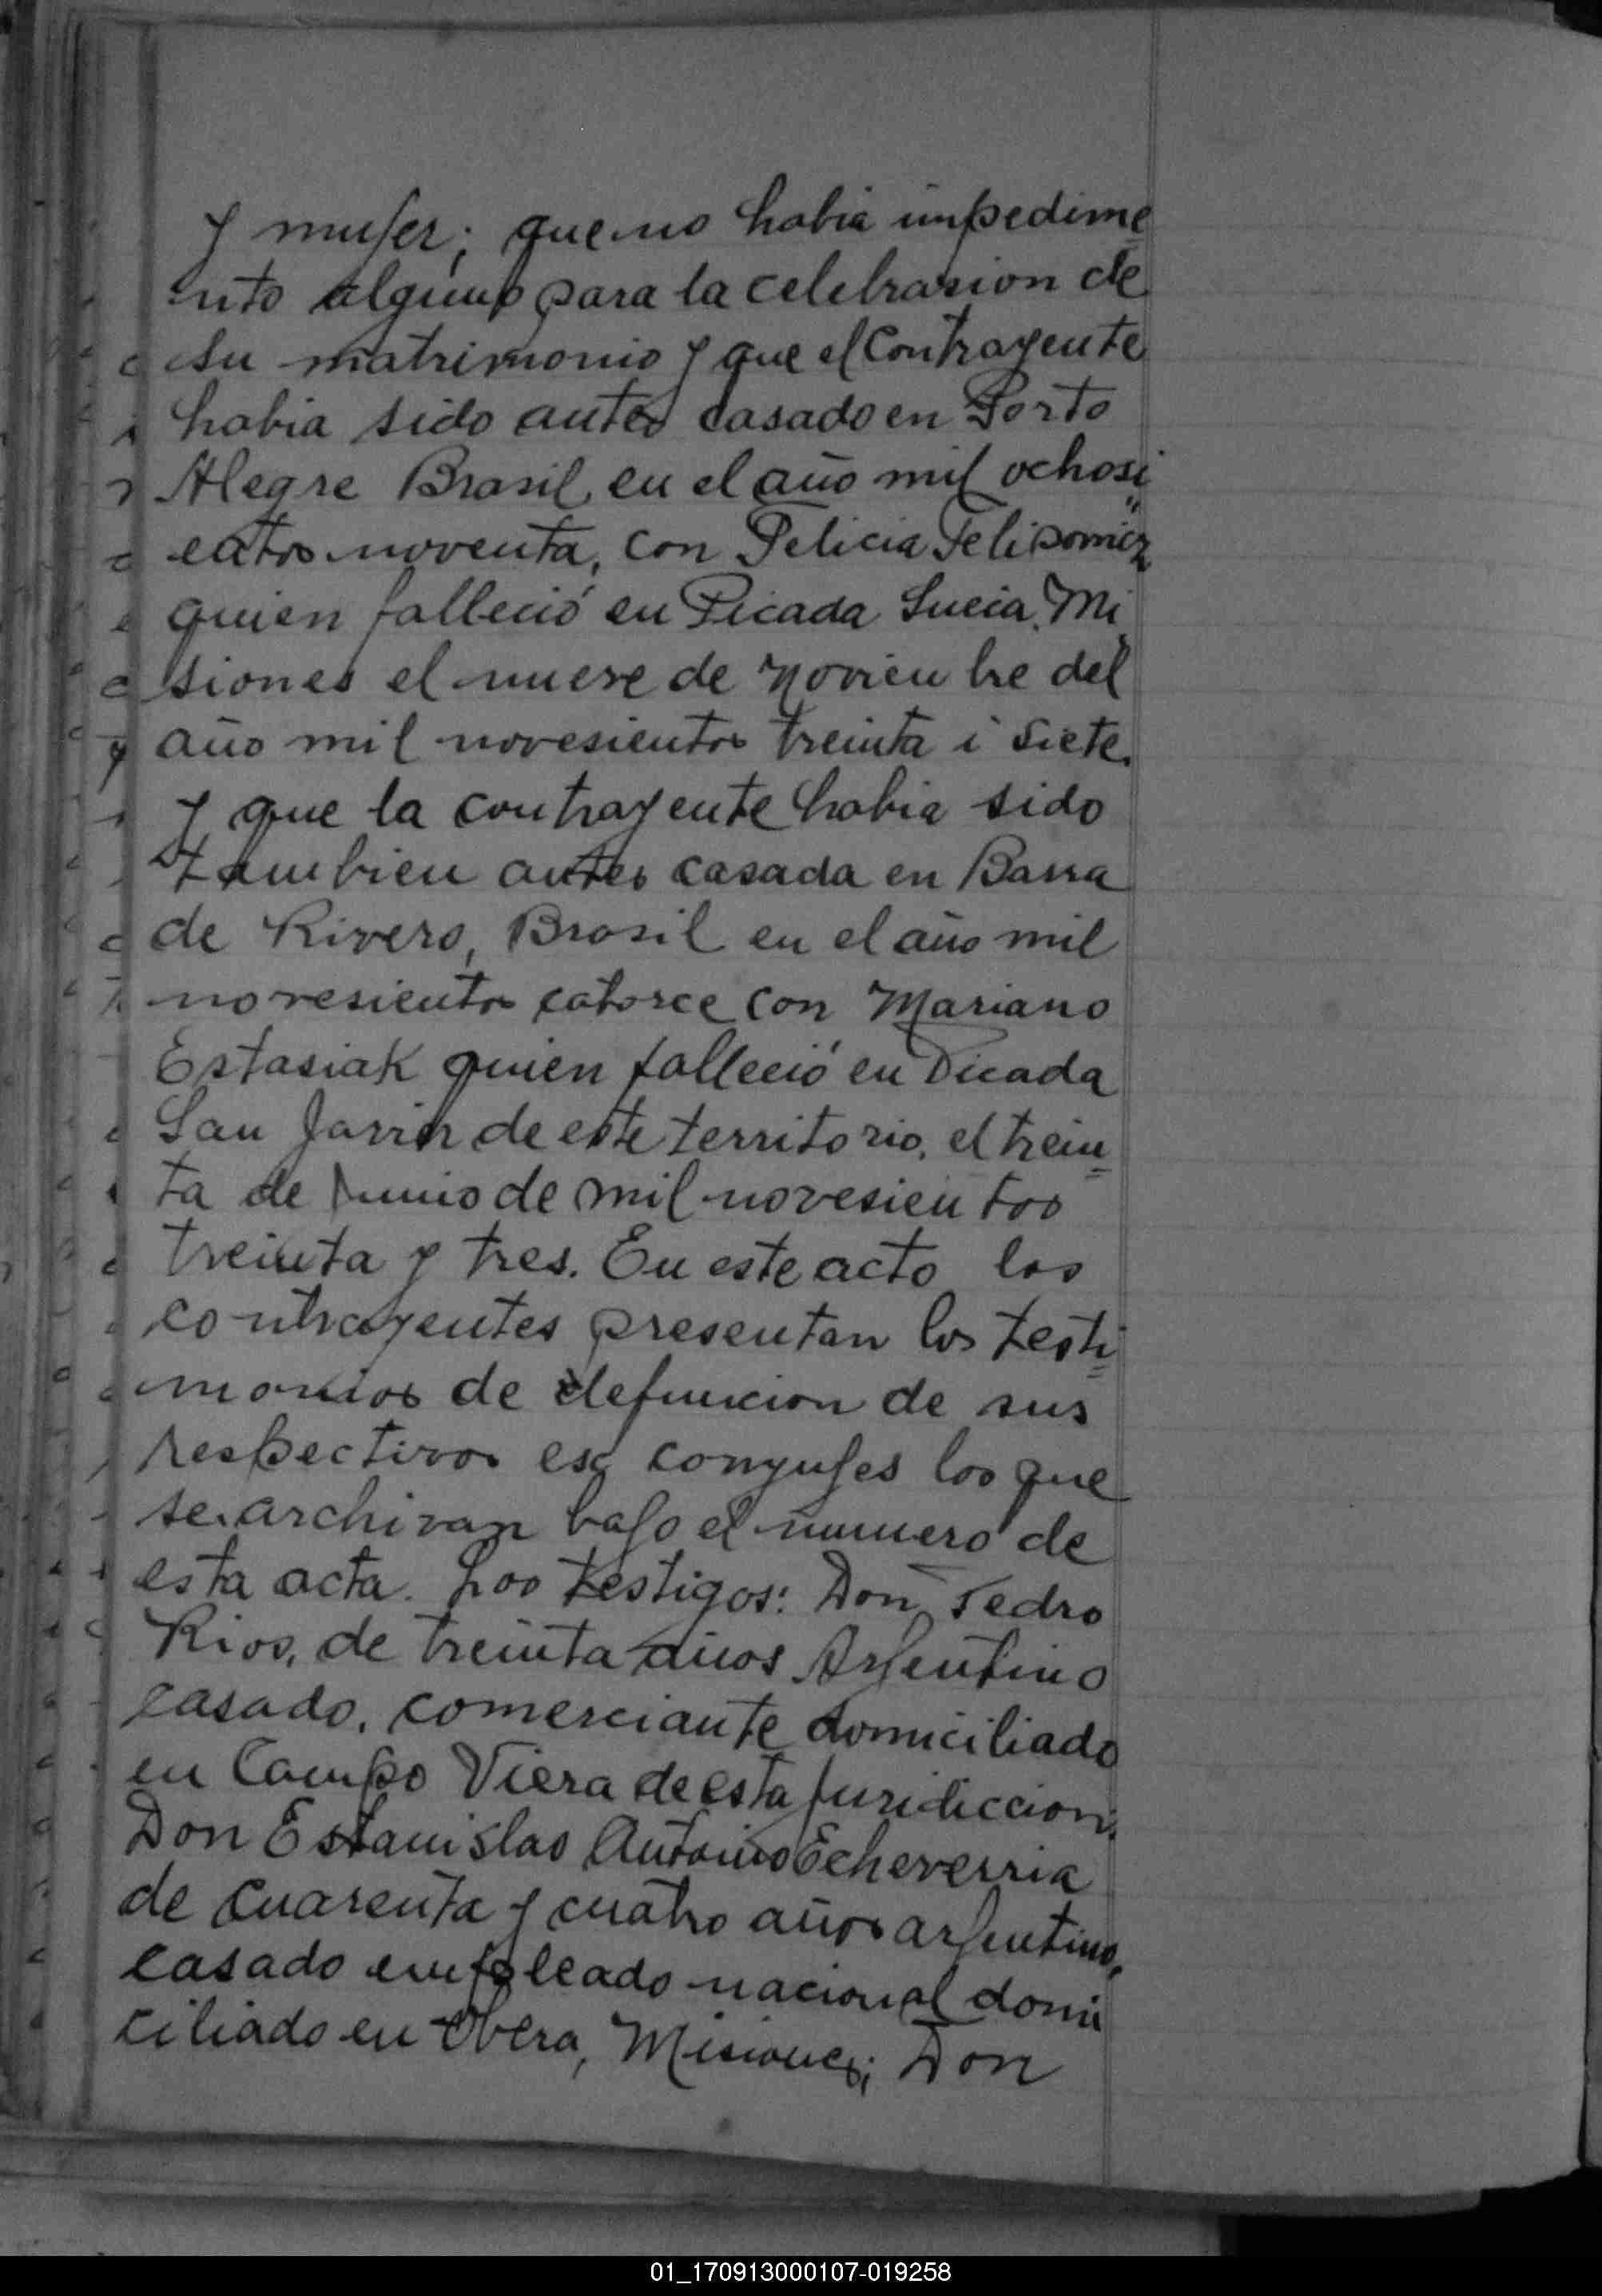 y mujer; que no habia impedime
nto alguno para la celebrasion de
su matrimonio y que el Contrayente
habia sido antes casado en Porto
Alegre Brasil, en el año mil ochosi
entos noventa, con Felicia
quien falleció en Picada Sueia, Mi
siones el nueve de Noviembre del
año mil novesientos treinta i siete.
y que la contrayente habia sido
tambien antes casada en Barra
de Rivero, Brasil en el año mil
novesientos catorce con Mariano
Estasiak quien falleció en Picada
San Javier de este territorio, el trein=
ta de Junio de mil novesientos
treinta y tres. En este acto los
contrayentes presentan los testi=
monios de defuncion de sus
respectivos ex conyujes los que
se archivan bajo el numero de
esta acta. Los testigos: Don Pedro
Rios, de treinta años Arjentino
casado, comerciante domiciliado
en Campo Viera de esta juridiccion.
Don Estanislao Antonio Echeverria
de cuarenta y cuatro años arjentino,
casado empleado nacional domi
ciliado en Obera, Misiones; Don
01_170913000107-019258